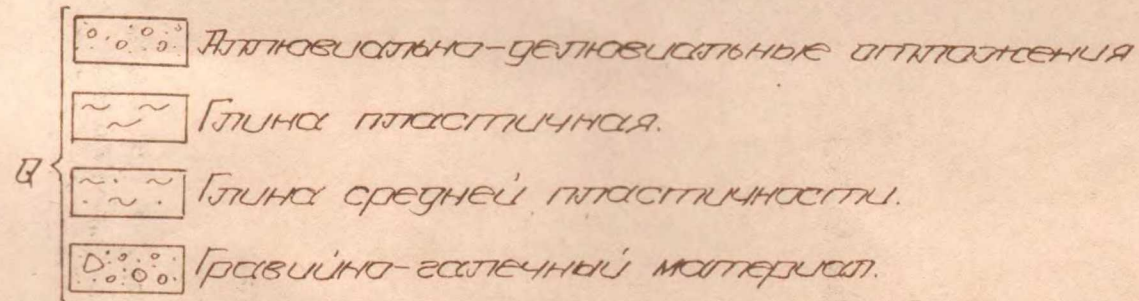 Аллювиально-делювиальные отложения
Глина пластичная.
Q
Глина средней пластичности.
Гравийно-галечный материал.